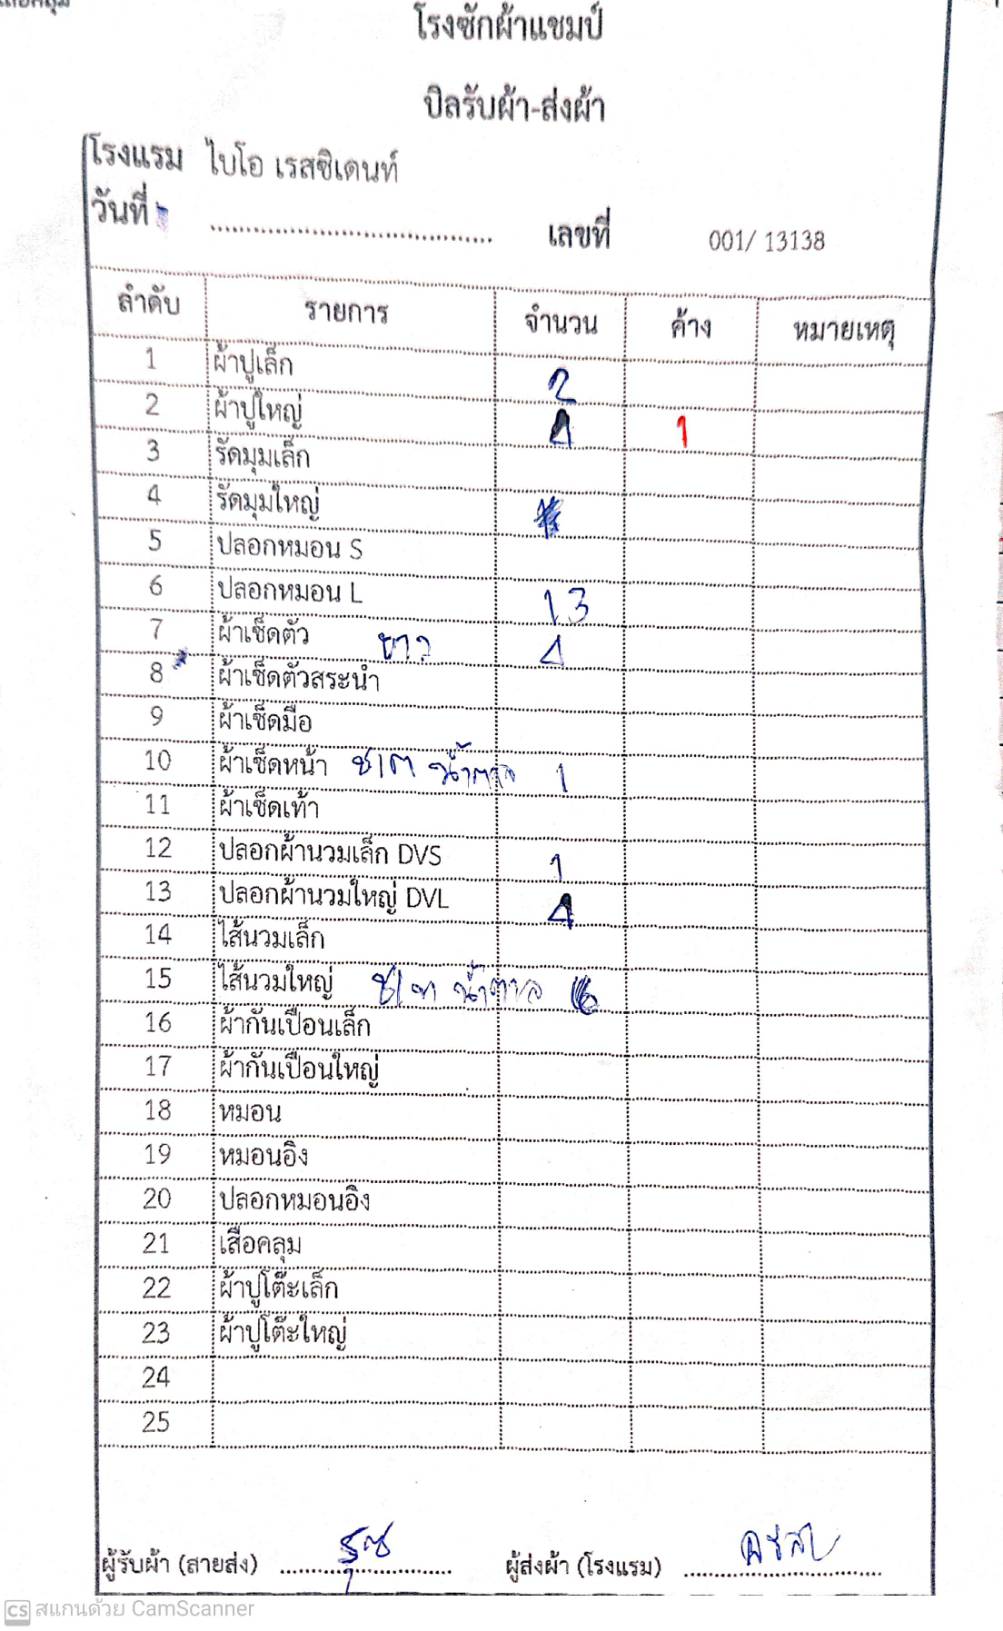 โรงซักผ้าแชมป์
บิลรับผ้า-ส่งผ้า
โรงแรม ไบโอ เรสซิเดนท์
วันที่ ........................ เลขที่ 001/ 13138
ลำดับ รายการ จำนวน ค้าง หมายเหตุ
1 ผ้าปูเล็ก 2
2 ผ้าปูใหญ่ 4 1
3 รัดมุมเล็ก
4 รัดมุมใหญ่
5 ปลอกหมอน S
6 ปลอกหมอน L 13
7 ผ้าเช็ดตัว ขาว 4
8 ผ้าเช็ดตัวสระน้ำ
9 ผ้าเช็ดมือ
10 ผ้าเช็ดหน้า น้ำตาล 1
11 ผ้าเช็ดเท้า
12 ปลอกผ้านวมเล็ก DVS 1
13 ปลอกผ้านวมใหญ่ DVL 4
14 ไส้นวมเล็ก
15 ไส้นวมใหญ่ น้ำตาล 6
16 ผ้ากันเปื้อนเล็ก
17 ผ้ากันเปื้อนใหญ่
18 หมอน
19 หมอนอิง
20 ปลอกหมอนอิง
21 เสื้อคลุม
22 ผ้าปูโต๊ะเล็ก
23 ผ้าปูโต๊ะใหญ่
24
25
ผู้รับผ้า (สายส่ง) ........................ ผู้ส่งผ้า (โรงแรม) ........................
CS สแกนด้วย CamScanner